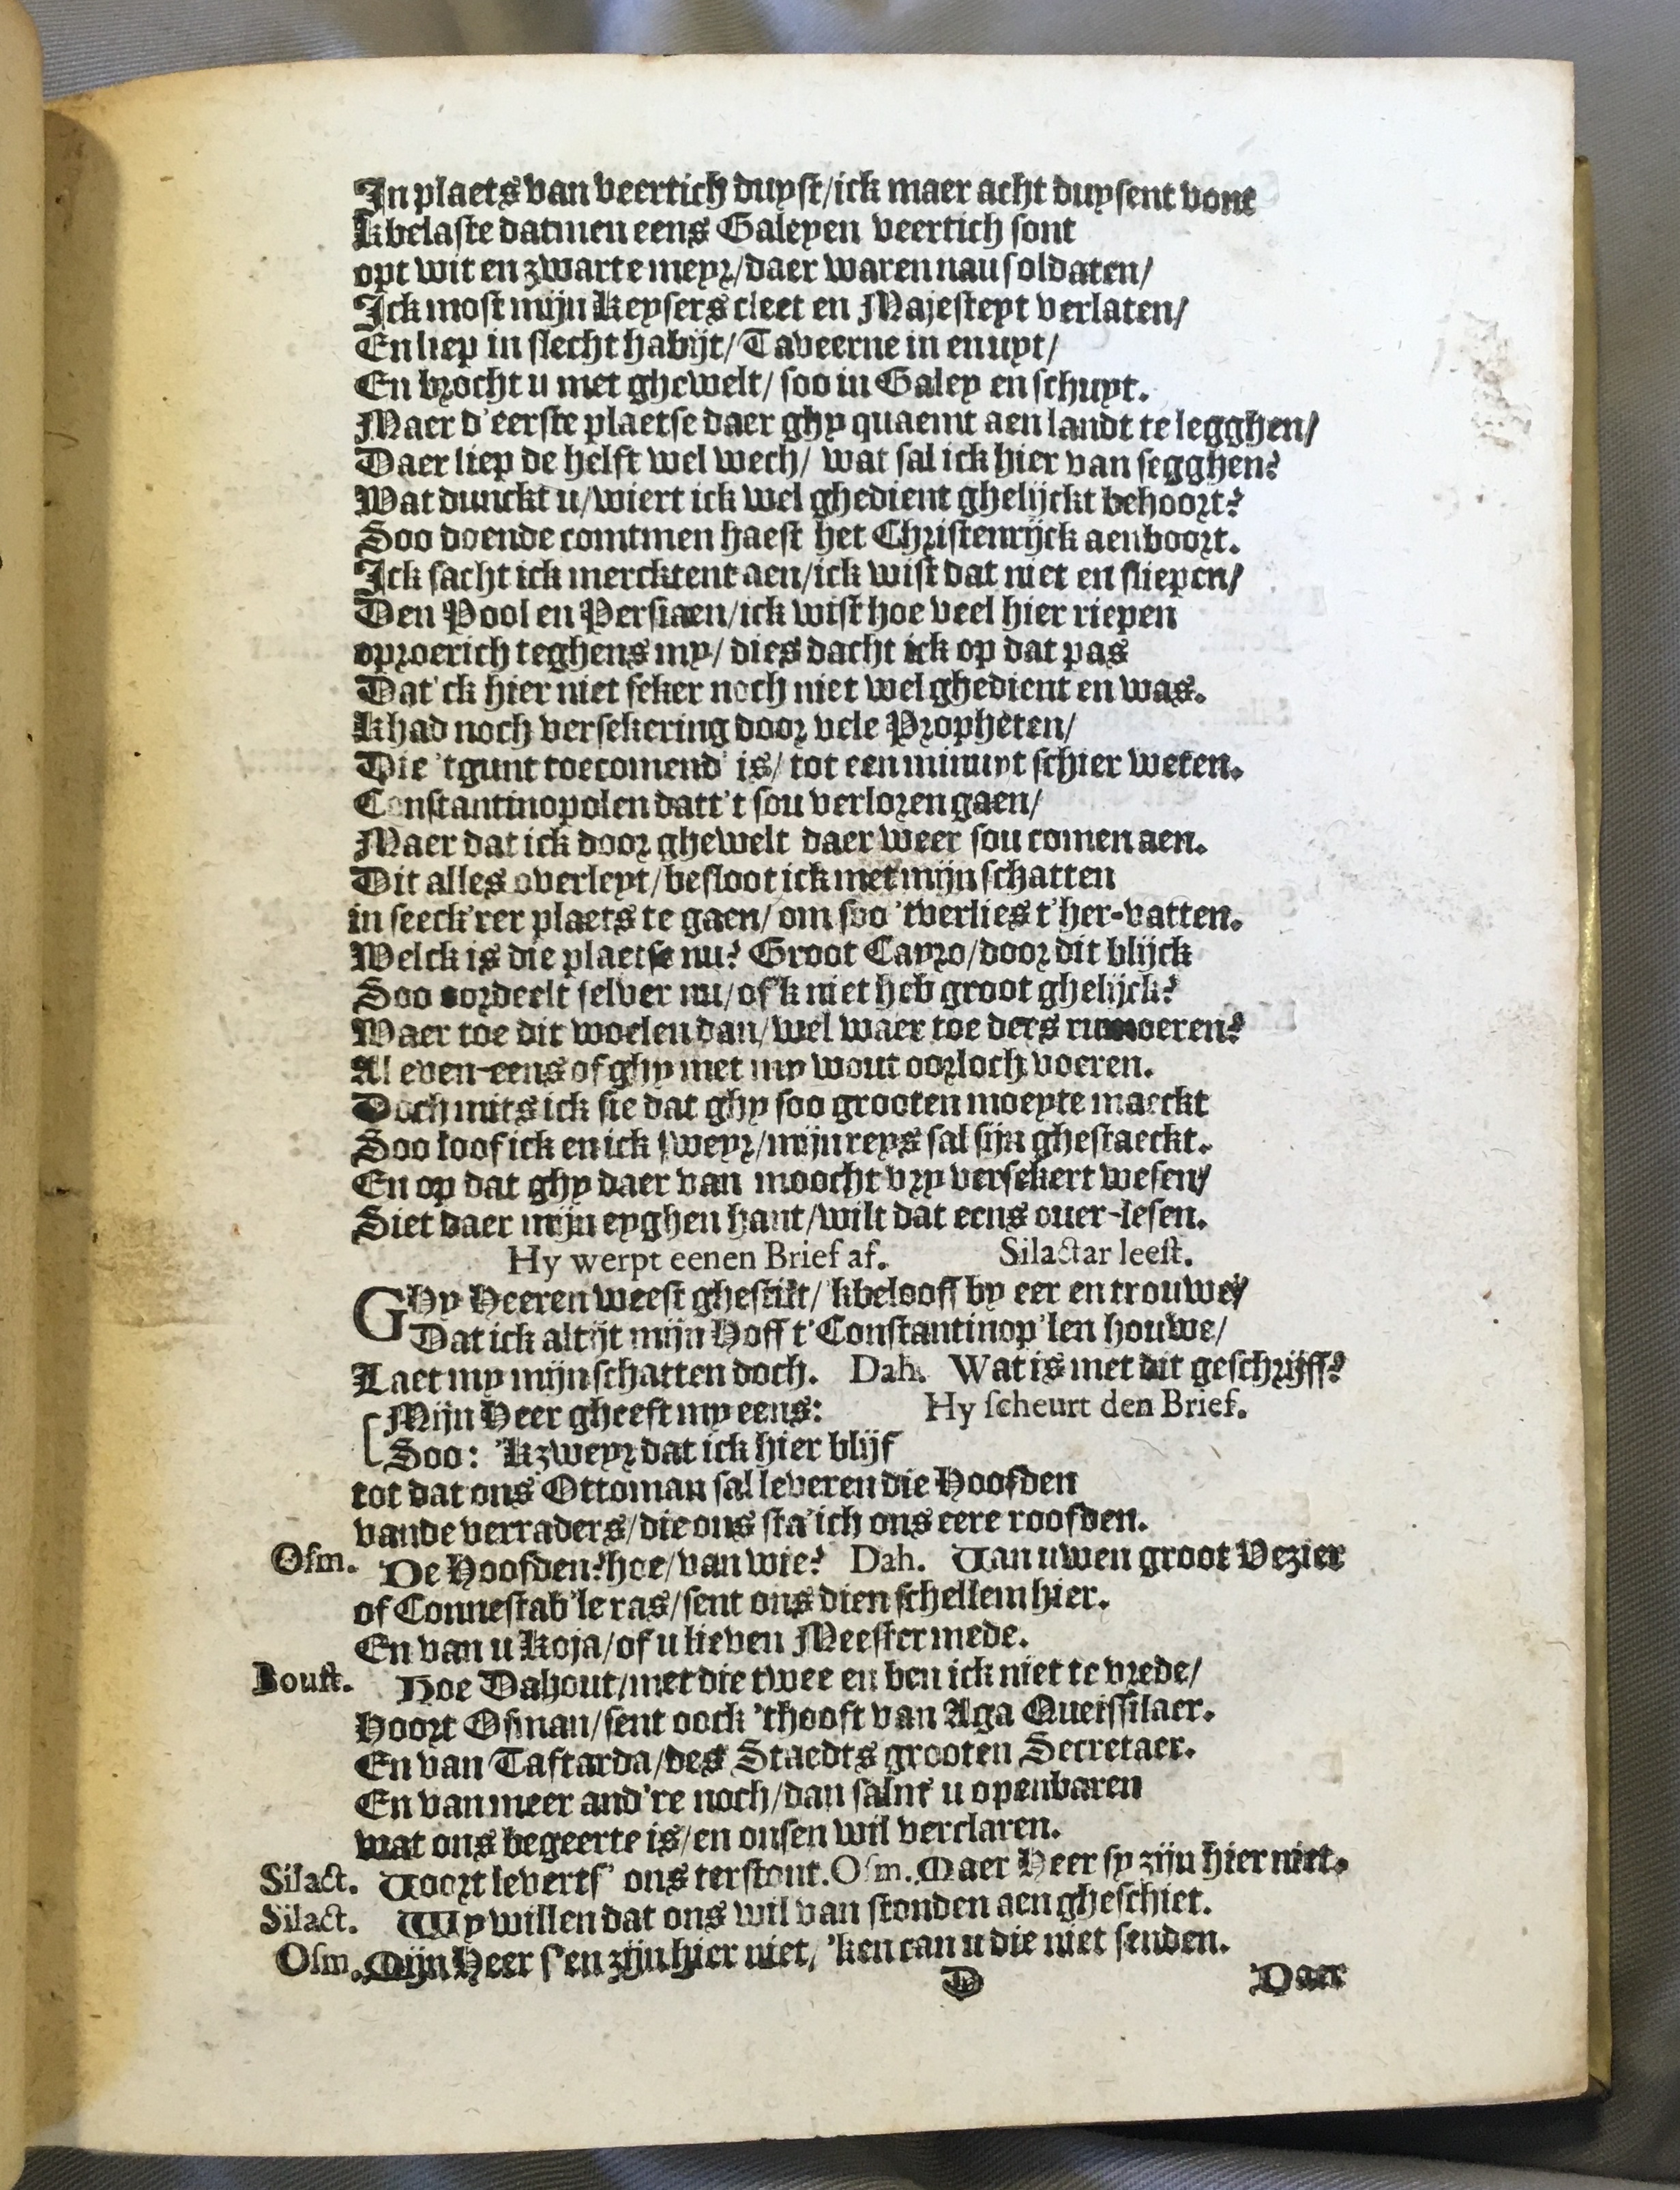 In plaets van veertich duyst/ick maer acht duysent vont
Kbelaste datmen eens Galeyen veertich sont
opt wit en zwarte meyr/daer waren nau soldaten/
Ick most mijn Keysers cleet en Majesteyt verlaten/
En liep in slecht habijt/Taveerne in en uyt/
En brocht u met ghewelt/soo in Galey en schuyt.
Maer d'eerste plaetse daer ghy quaemt aen landt te legghen/
Daer liep de helft wel wech/ wat sal ick hier van segghen?
Wat dunckt u/wiert ick wel ghedient ghelijckt behoort?
Soo doende comtmen haest het Christenrijck aenboort.
Ick sacht ick mercktent aen/ick wist dat niet en sliepen/
Den Pool en Persiaen/ick wist hoe veel hier riepen
oproerich teghens my/ dies dacht ick op dat pas
Dat'ck hier niet seker noch niet wel ghedient en was.
Khad noch versekering door vele Propheten/
Die 'tgunt toecomend' is/ tot een minuyt schier weten.
Constantinopolen datt't sou verloren gaen/
Maer dat ick door ghewelt daer weer sou comen aen.
Dit alles overleyt/besloot ick met mijn schatten
in seeck'rer plaets te gaen/ om soo 'tverlies t'her-vatten.
Welck is die plaetse nu? Groot Cayro/door dit blijck
Soo oordeelt selver nu/of'k niet heb groot ghelijck?
Waer toe dit woelen dan/wel waer toe dees rumoeren?
Al even-eens of ghy met my wout oorloch voeren.
Doch mits ick sie dat ghy soo grooten moeyte maeckt
Soo loof ick en ick sweyr/mijn reys sal sijn ghestaeckt.
En op dat ghy daer van moocht vry versekert wesen/
Siet daer mijn eyghen hant/wilt dat eens over-lesen.
Hy werpt eenen Brief af. Silactar leest.
Ghy Heeren weest ghestilt/'kbelooff by eer en trouwe/
Dat ick altijt mijn Hoff t'Constantinop'len houwe/
Laet my mijn schatten doch. Dah. Wat is met dit geschrijff?
Mijn Heer gheeft my eens: Hy scheurt den Brief.
Soo: 'Kzweyr dat ick hier blijf
tot dat ons Ottoman sal leveren die Hoofden
vande verraders/die ons sta'ich ons eere roofden.
Osm. De Hoofden? hoe/van wie? Dah. Van uwen groot Vezier
of Connestab'le ras/sent ons dien schellem hier.
En van u Koja/of u lieven Meester mede.
Boust. Hoe Dahout/met die twee en ben ick niet te vrede/
Hoort Osman/sent oock 'thooft van Aga Queissilaer.
En van Taftarda/des Staedts grooten Secretaer.
En van meer and're noch/dan salmt' u openbaren
wat ons begeerte is/en onsen wil verclaren.
Silact. Voort leverts' ons terstont. Osm. Maer Heer sy zijn hier niet.
Silact. Wy willen dat ons wil van stonden aen gheschiet.
Osm. Mijn Heer s'en zijn hier niet/'ken can u die niet senden.
D Daer